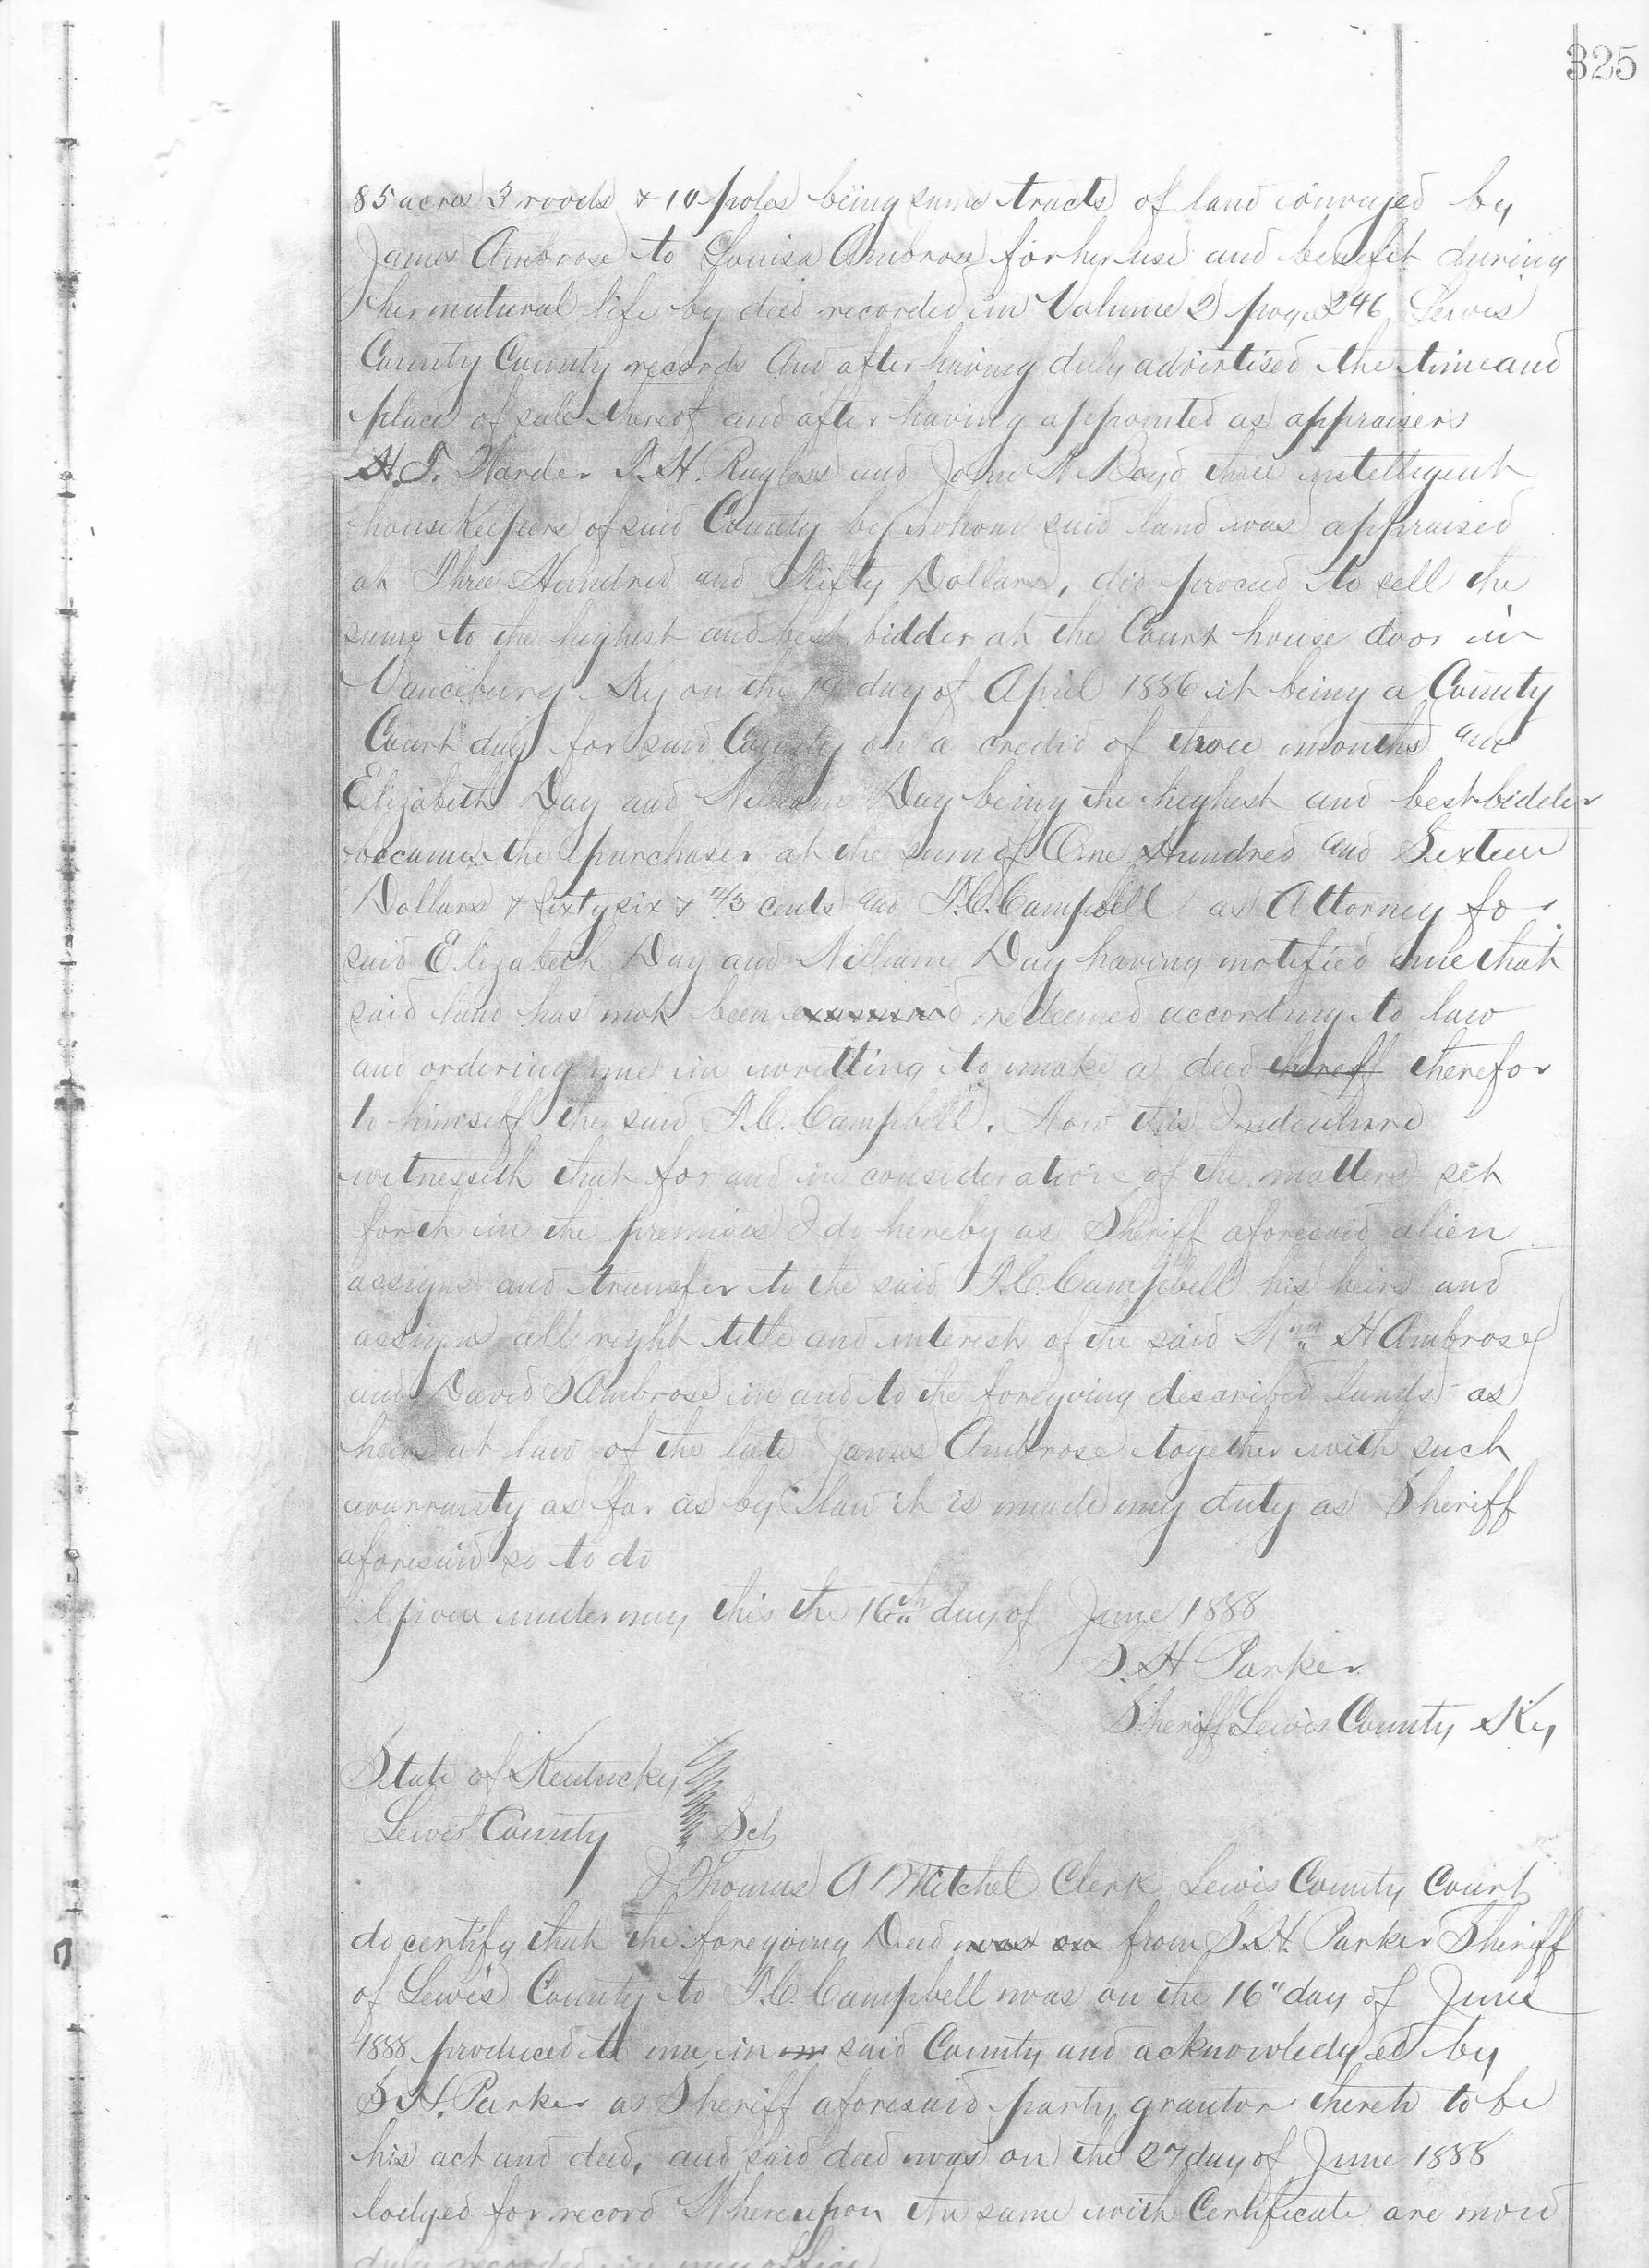 325
85 acres 3 roods & 10 poles being same tracts of land conveyed by
James Ambrose to Louisa Ambrose for her use and benefit during
her natural life by deed recorded in Volume 2 page 246 Lewis
County County records And after having duly advertised the time and
place of sale thereof and after having appointed as appraisers
H. T. Warder I. H. Rugless and John W Boyd three intelligent
housekeepers of said County by whom said land was appraised
at Three Hundred and Fifty Dollars, did proceed to sell the
same to the highest and best bidder at the Court house door in
Vanceburg Ky on the 19 day of April 1886 it being a County
Court day for said County on a credit of three months and
Elizabeth Day and William Day being the highest and best bidder
became the purchaser at the sum of One Hundred and Sixteen
Dollars & Sixty six & 2/3 cents and T.C. Campbell as Attorney for
said Elizabeth Day and William Day having notified me that
said land has not been redeemed according to law
and ordering me in writting to make a deed thereof therefor
to himself the said T.C. Campbell. Now this Indenture
witnesseth that for and in consideration of the matters set
forth in the premises I do hereby as Sheriff aforesaid alien
assigns and transfer to the said T.C. Campbell his heirs and
assigns all right title and interest of the said Wm H Ambrose
and David S Ambrose in and to the foregoing described lands as
heirs at law of the late James Ambrose together with such
warranty as far as by law it is made my duty as Sheriff
aforesaid so to do
Given under my this the 16th day of June 1888
S. H Parker
Sheriff Lewis County Ky
State of Kentucky
Lewis County Sct
I Thomas A Mitchel Clerk Lewis County Court
do certify that the foregoing Deed was on from S.H. Parker Sheriff
of Lewis County to T.C. Campbell was on the 16" day of June
1888 produced to me in said County and acknowledged by
S H. Parker as Sheriff aforesaid party grantor thereto to be
his act and deed, and said deed was on the 27 day of June 1888
lodged for record Whereupon the same with Certificate are now
duly recorded in my office